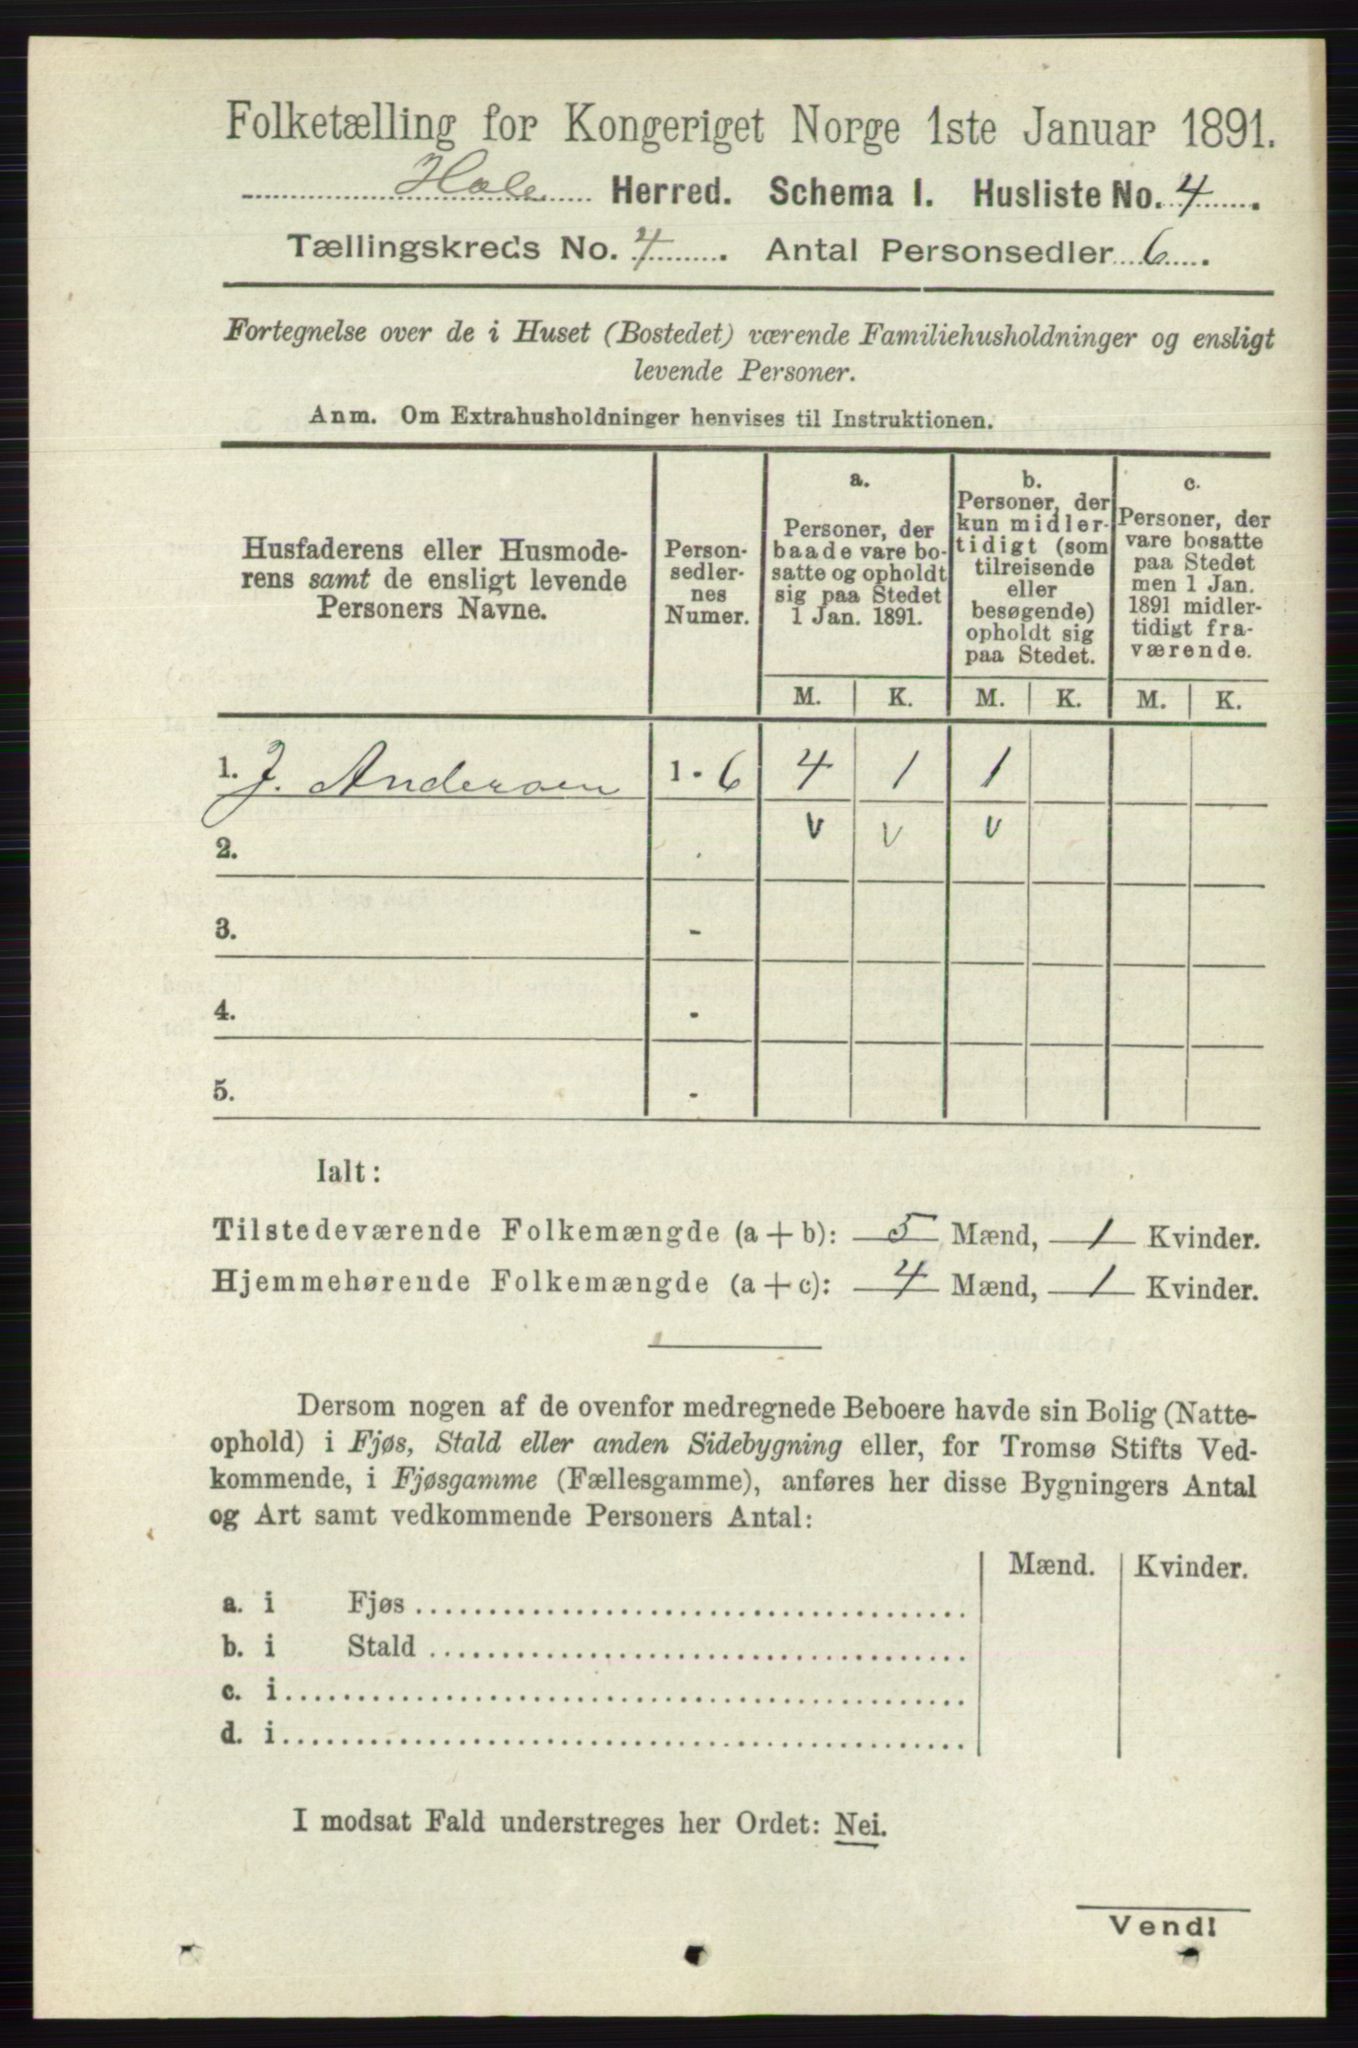 Folketælling for Kongeriget Norge 1ste Januar 1891.
Hole Herred. Schema I. Husliste No. 4
Tællingskreds No. 4. Antal Personsedler 6.
Fortegnelse over de i Huset (Bostedet) værende Familiehusholdninger og ensligt
levende Personer.
Anm. Om Extrahusholdninger henvises til Instruktionen.
Husfaderens eller Husmode-
rens samt de ensligt levende
Personers Navne.
Person-
sedler-
nes
Numer.
a.
Personer, der
baade vare bo-
satte og opholdt
sig paa Stedet
1 Jan. 1891.
b.
Personer, der
kun midler-
tidigt (som
tilreisende
eller
besøgende)
opholdt sig
paa Stedet.
c.
Personer, der
vare bosatte
paa Stedet
men 1 Jan.
1891 midler-
tidigt fra-
værende.
M. K. M. K. M. K.
1. J. Andersen 1 - 6 4 1 1
2. v v v
3. -
4. -
5. -
Ialt:
Tilstedeværende Folkemængde (a + b): 5 Mænd, 1 Kvinder.
Hjemmehørende Folkemængde (a + c): 4 Mænd, 1 Kvinder.
Dersom nogen af de ovenfor medregnede Beboere havde sin Bolig (Natte-
ophold) i Fjøs, Stald eller anden Sidebygning eller, for Tromsø Stifts Ved-
kommende, i Fjøsgamme (Fællesgamme), anføres her disse Bygningers Antal
og Art samt vedkommende Personers Antal:
Mænd. Kvinder.
a. i Fjøs
b. i Stald
c. i
d. i
I modsat Fald understreges her Ordet: Nei.
Vend!